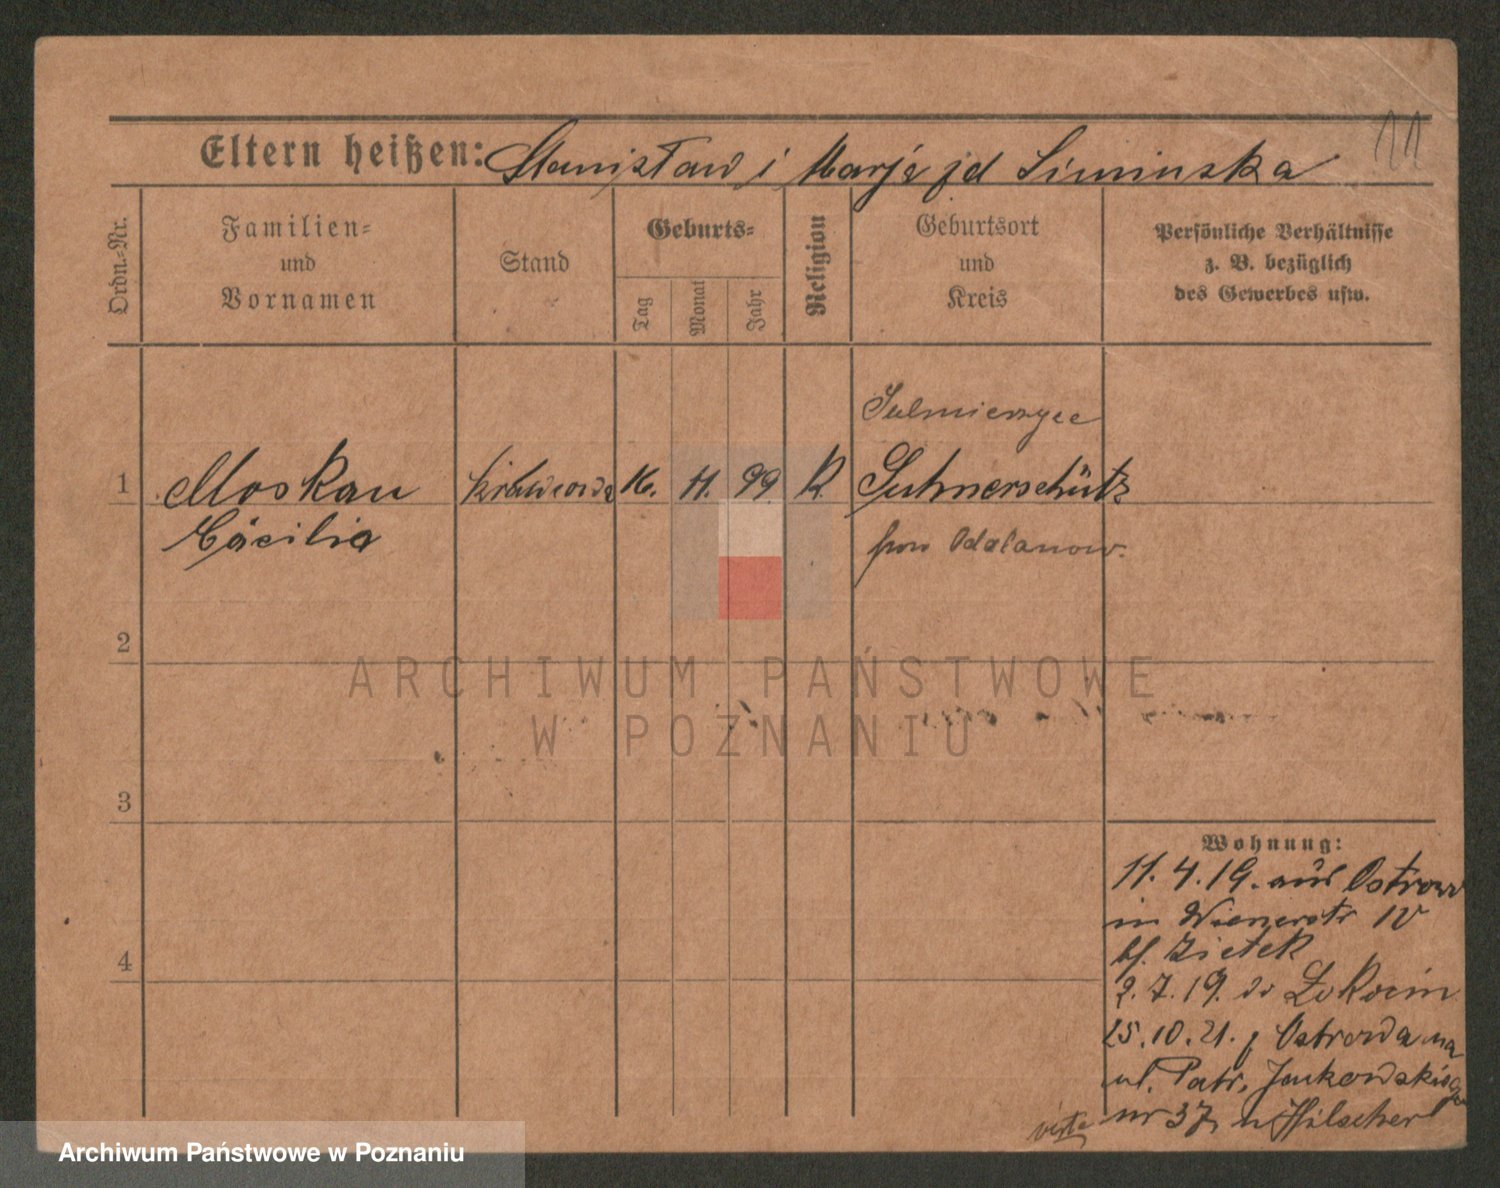 11
Eltern heißen: Stanisław i Marja zd Siminska
Ordn.-Nr.
Familien- und Vornamen
Stand
Geburts-
Tag
Monat
Jahr
Religion
Geburtsort und Kreis
Persönliche Verhältnisse z. B. bezüglich des Gewerbes usw.
Sulmierzyce
1 Moskau krawcowa 16. 11. 99 K.
Cäcilie
pow Odolanow.
2
3
4
Wohnung:
11. 4. 19. aus Ostrowo
in Wienerstr IV
bf. Zietek
2. 7. 19. do
25. 10. 21. z Ostrowa na
ul. Patr. Jackowskiego
nr 37, u Hilscher
verte
ARCHIWUM PAŃSTWOWE
W POZNANIU
Archiwum Państwowe w Poznaniu